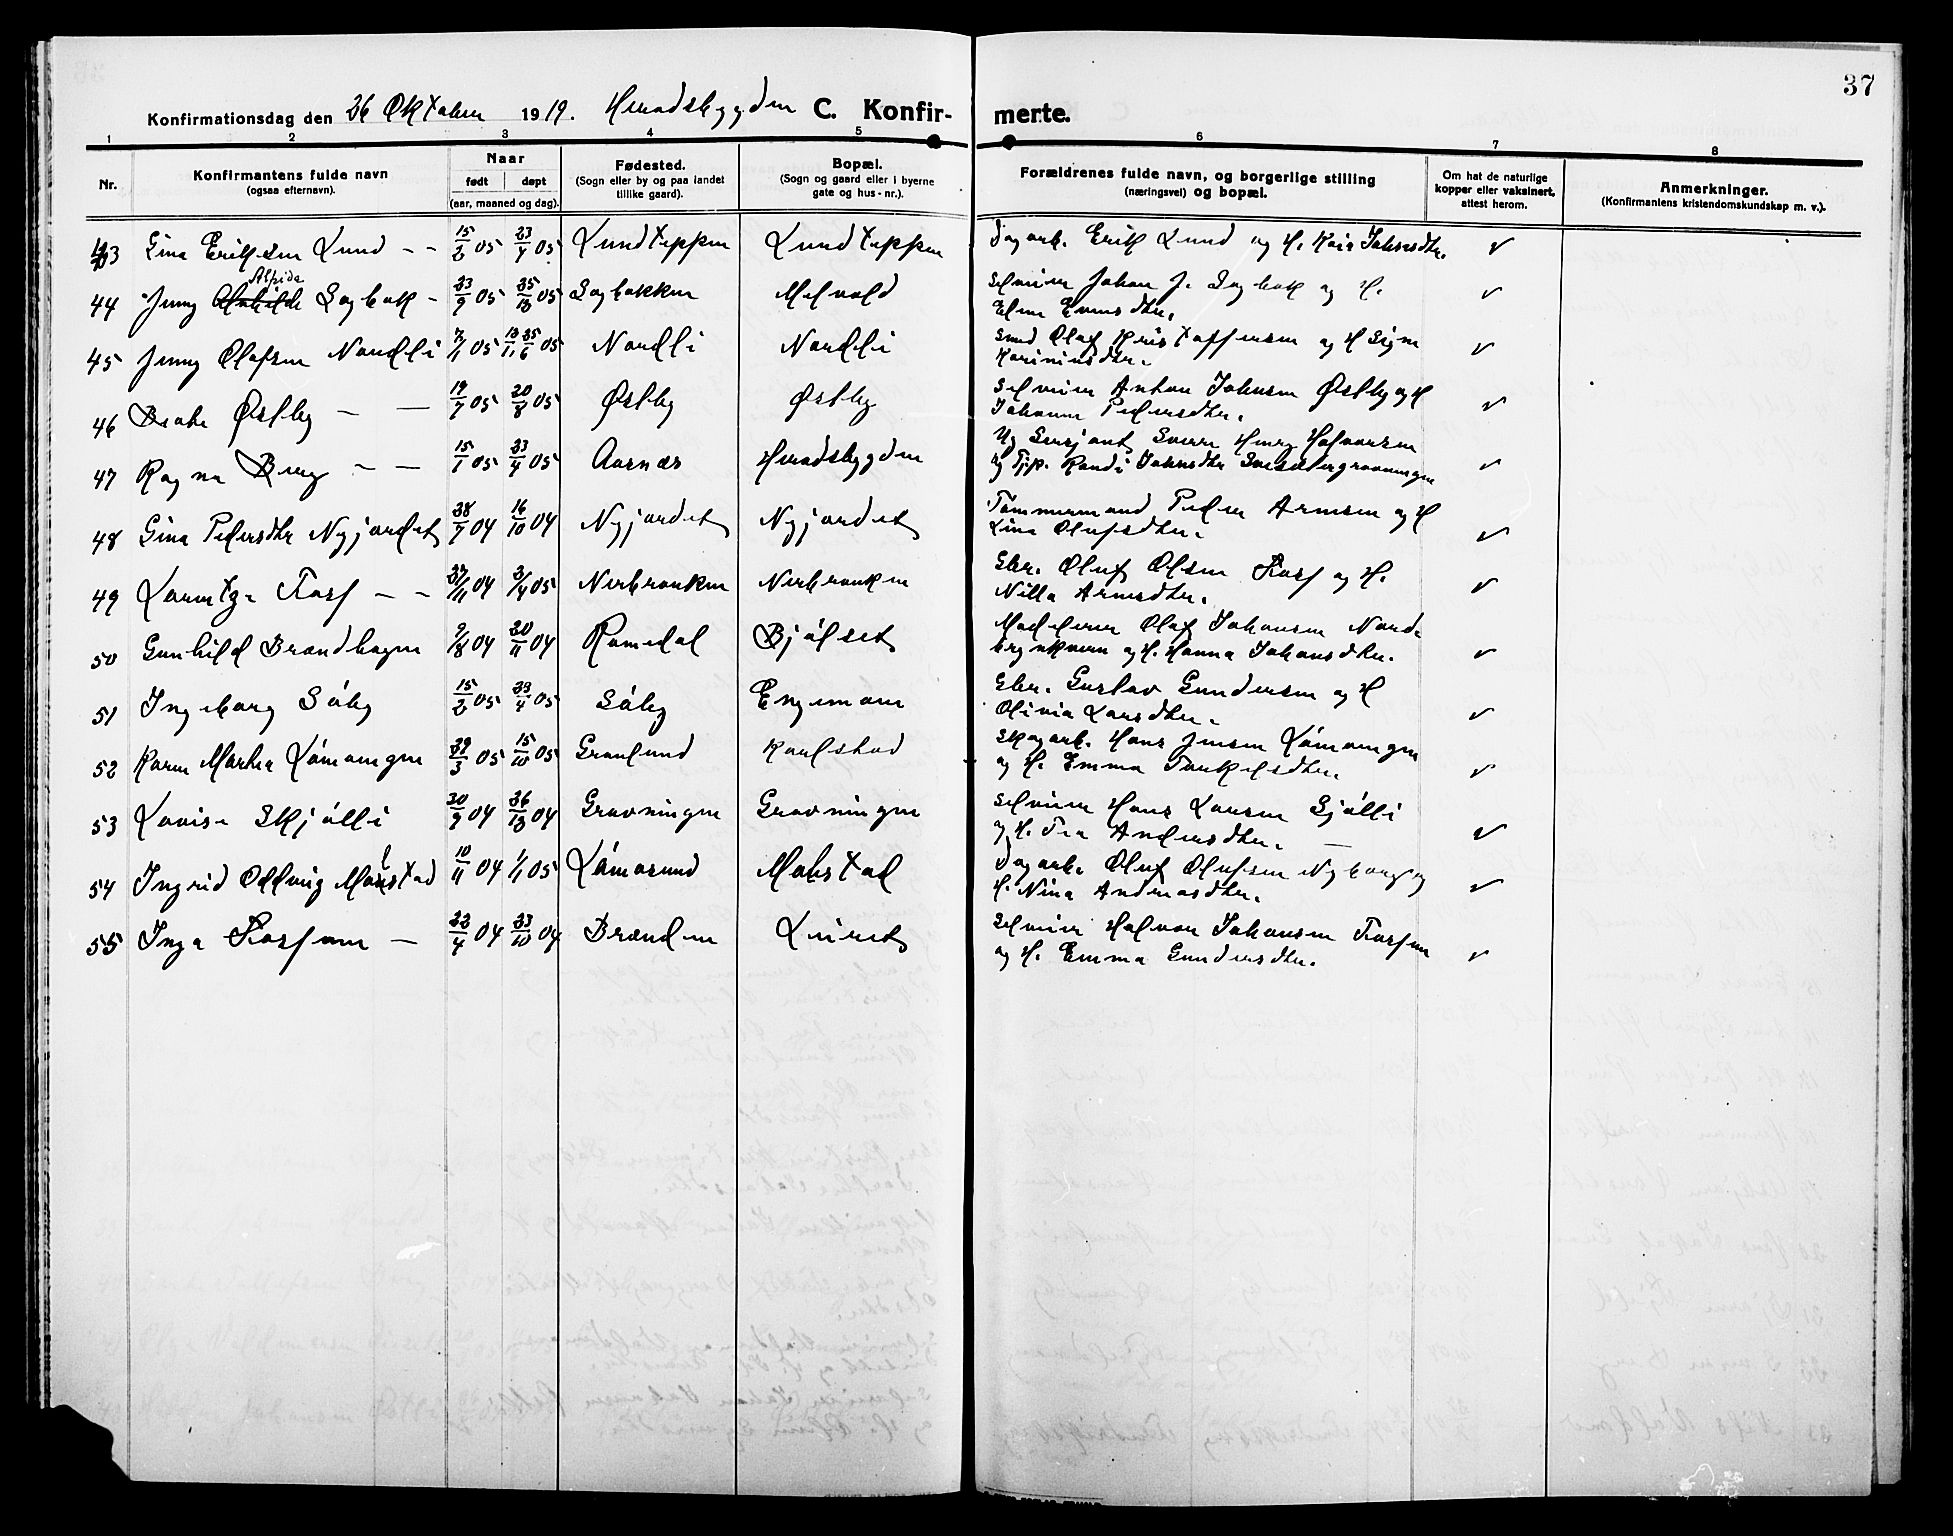 37
Konfirmationsdag den 26 Oktober 1919. Heradsbygden C. Konfir- merte.
1 2 3 4 5 6 7 8
Nr. Konfirmantens fulde navn (ogsaa efternavn). Naar født døpt (aar, maaned og dag). Fødested. (Sogn eller by og paa landet tillike gaard). Bopæl. (Sogn og gaard eller i byerne gate og hus-nr.). Forældrenes fulde navn, og borgerlige stilling (næringsvei) og bopæl. Om hat de naturlige kopper eller vaksinert, attest herom. Anmerkninger. (Konfirmantens kristendomskundskap m. v.).
43 Gina Eriksen Lund - - 15/2 05 23/4 05 Lundteppen Lundteppen Dagarb. Erik Lund og H. Johnsdtr. v
Alfida
44 Jenny Sagbak - 23/9 05 25/12 05 Sagbakken Melvold Selveier Johan J. Sagbak og H. v
Eline Evensdtr.
45 Jenny Olafsen Nordli 7/1 05 25/6 05 Nordli Nordli Smed Olaf Kristoffersen og H Signe v
Kariniusdtr.
46 Beate Østby - - 19/7 05 20/8 05 Østby Østby Selveier Anton Johnsen Østby og H v
Johanne Pedersdtr.
47 Ragna Berg - - 15/1 05 23/4 05 Aasnæs Heradsbygden Ug Sersjant Sverre Henry Halvorsen
og Pige Randi Johnsdtr v
48 Gina Pedersdtr Nyjordet 28/7 04 16/10 04 Nyjordet Nyjordet Tømmermand Peder Arnesen og H
Lina Olufsdtr. v
49 Torf - - 27/11 04 3/4 05 Nerbrauken Nerbrauken Gbr. Oluf Olsen Torf og H. v
Nilla Arnesdtr.
50 Gunhild Brændhagen 9/8 04 20/11 04 Romedal Bjølset Olaf Johansen Nord-
og H. Hanna Johansdtr. v
51 Ingeborg Søby 15/2 05 23/4 05 Søby Engemoen Gbr. Gustav Gundersen og H
Olivia Larsdtr. v
52 Karen Marthea Lømoengen 29/3 05 15/10 05 Grønlund Karlstad Skogarb. Hans Jensen Lømoengen
og H. Emma Torkelsdtr. v
53 Lovise Skjølli 30/9 04 26/12 04 Gravningen Gravningen Selveier Hans Larsen Sjølli
og H. Tea Andersdtr. - v
54 Ingrid Oddvig Molstad 10/11 04 1/1 05 Lømosund Molstad Dagarb. Oluf Olufsen Nyborg og
H. Nina Andreasdtr. v
55 Inga Torfmoen - 22/4 04 23/10 04 Brænden Leiret Selveier Halvor Johansen Torfmoen
og H. Emma Gundersdtr. v